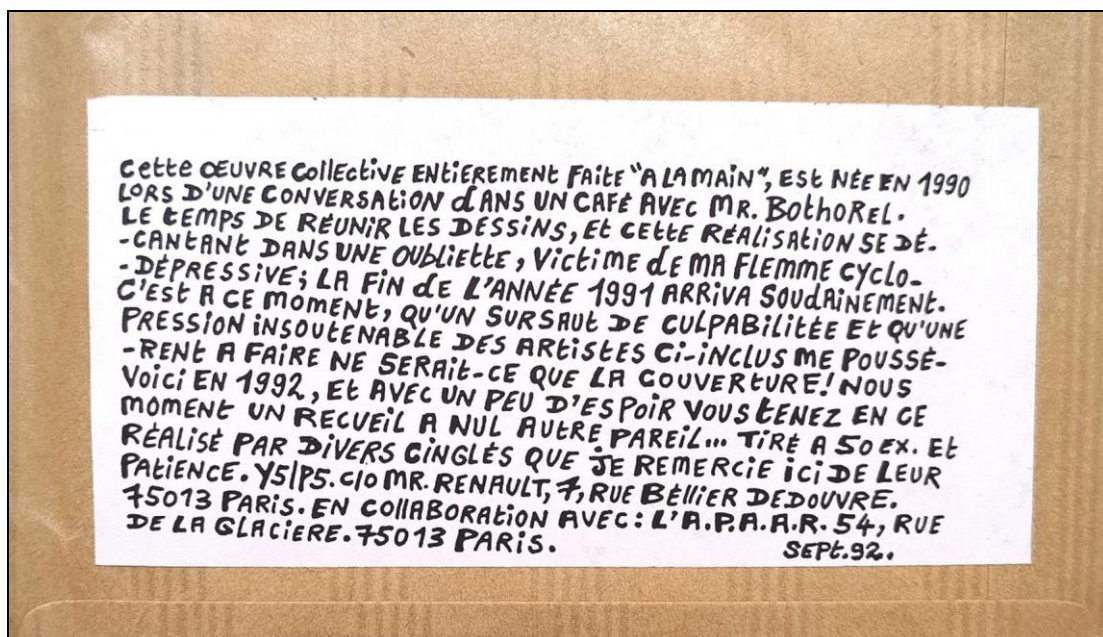 Cette OEUVRE COllECTiVE ENTiEREMENT FAitE "A LA MAiN", ESt NÉE EN 1990
LORS D'UNE CONVERSATiON dANS UN CAFÉ AVEC MR. BOthOREL.
LE tEMPS DE RÉUNiR LES DESSiNS, Et CEttE RÉALiSAtiON SE DÉ-
-CANTANT DANS UNE OUbLiEttE, ViCtiME dE MA FLEMME CYCLO-
-DÉPRESSiVE; LA FiN dE L'ANNÉE 1991 ARRiVA SOUdAiNEMENT.
C'ESt A CE MOMENt, QU'UN SURSAUt DE CULPABiLitÉE Et QU'UNE
PRESSiON iNSOUtENABLE DES ARtiStES Ci-iNCLUS ME POUSSÈ-
-RENt A FAiRE NE SERAit-CE QUE LA COUVERtURE! NOUS
VOiCi EN 1992, Et AVEC UN PEU D'ESPOiR VOUS tENEZ EN CE
MOMENt UN RECUEiL A NUL AUtRE PAREiL... TiRÉ A 50 EX. Et
RÉALiSÉ PAR DiVERS CiNGLÉS QUE JE REMERCiE iCi DE LEUR
PAtiENCE. Y5/P5. C/O MR. RENAULT, 7, RUE BÉlliER DEDOUVRE.
75013 PARiS. EN COllABORAtiON AVEC: L'A.P.A.A.R. 54, RUE
DE LA GLACiERE. 75013 PARiS.
SEPt. 92.